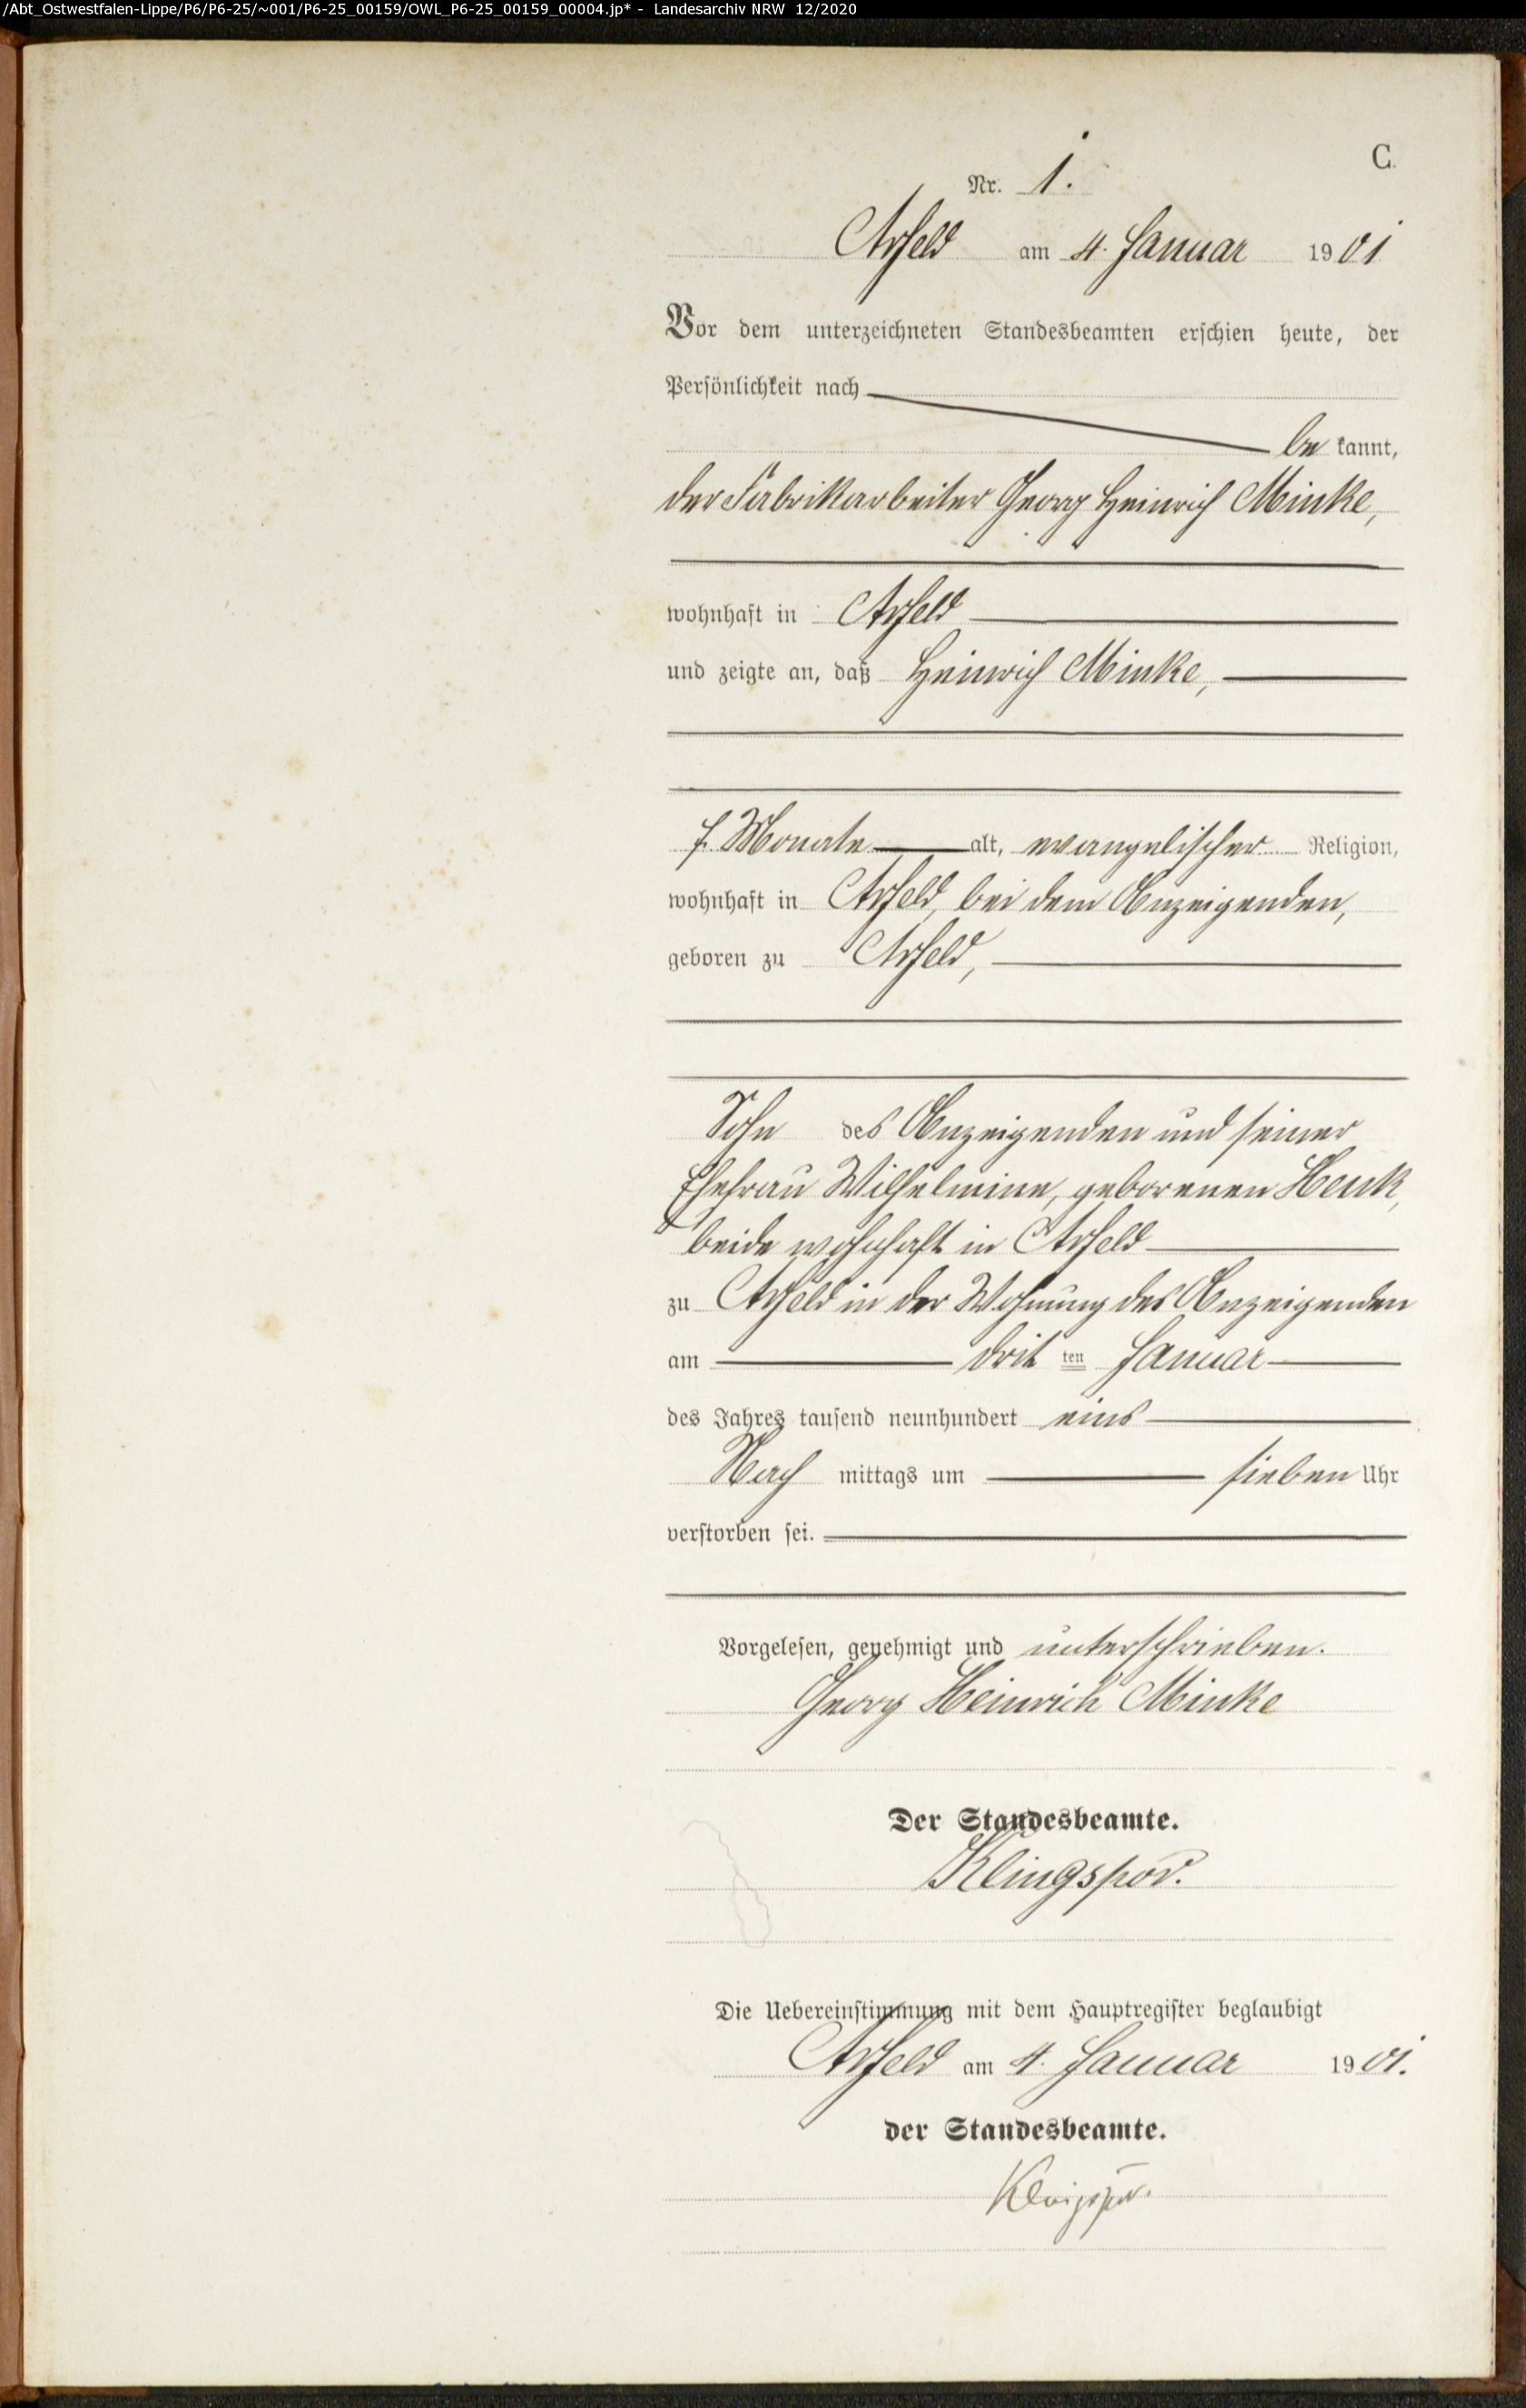 /Abt_Ostwestfalen-Lippe/P6/P6-25/~001/P6-25_00159/OWL_P6-25_00159_00004.jp* - Landesarchiv NRW 12/2020
C.
Nr. 1.
Arfeld am 4. Januar 1901
Vor dem unterzeichneten Standesbeamten erschien heute, der
Persönlichkeit nach
be kannt,
der Fabrikarbeiter Georg Heinrich Minke,
wohnhaft in Arfeld
und zeigte an, daß Heinrich Minke,
Monate alt, evangelischer Religion,
wohnhaft in Arfeld, bei dem Anzeigenden,
geboren zu Arfeld,
Sohn des Anzeigenden und seiner
Ehefrau Wilhelmine, geborenen Henk,
beide wohnhaft in Arfeld
zu Arfeld in der Wohnung des Anzeigenden
am drit ten Januar
des Jahres tausend neunhundert eins
Nach mittags um sieben Uhr
verstorben sei.
Vorgelesen, genehmigt und unterschrieben.
Georg Heinrich Minke
Der Standesbeamte.
Klingspor.
Die Uebereinstimmung mit dem Hauptregister beglaubigt
Arfeld am 4. Januar 1901.
der Standesbeamte.
Klingspor.